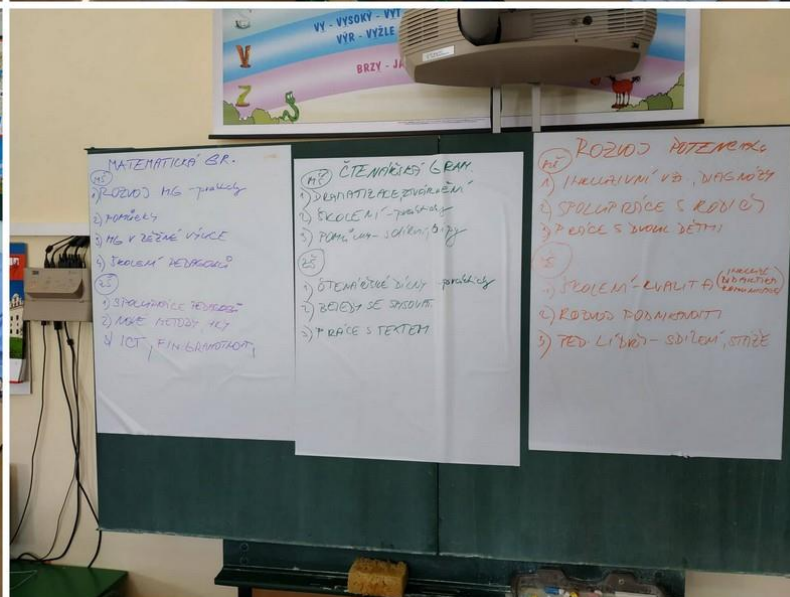 S
V
Z
VY - VYSOKÝ - VÝT
VÝR - VYŽLE
BRZY - JA
MATEMATICKÁ GR.
MŠ
1) ROZVOJ MG - prakticky
2) POMŮCKY
3) MG V BĚŽNÉ VÝUCE
4) ŠKOLENÍ PEDAGOGŮ
ZŠ
1) SPOLUPRÁCE PEDAGOGŮ
2) NOVÉ METODY, HRY
3) ICT, FIN. GRAMOTNOST,
ČTENÁŘSKÁ GRAM.
MŠ
1) DRAMATIZACE,
2) ŠKOLENÍ - prakticky
3) POMŮCKY -
ZŠ
1) ČTENÁŘSKÉ DÍLNY - prakticky
2) BESEDY SE SPISOVAT.
3) PRÁCE S TEXTEM
ROZVOJ POTENCIÁLU
MŠ
1) INKLUZIVNÍ VZ., DIAGNÓZY
2) SPOLUPRÁCE S RODIČI
3) PRÁCE S DVOUL. DĚTMI
ZŠ
1) ŠKOLENÍ - KVALITA (INKLUZE DIDAKTIKA
2) ROZVOJ PODNIKAVOSTI
3) PED. LÍDŘI - SDÍLENÍ, STÁŽE